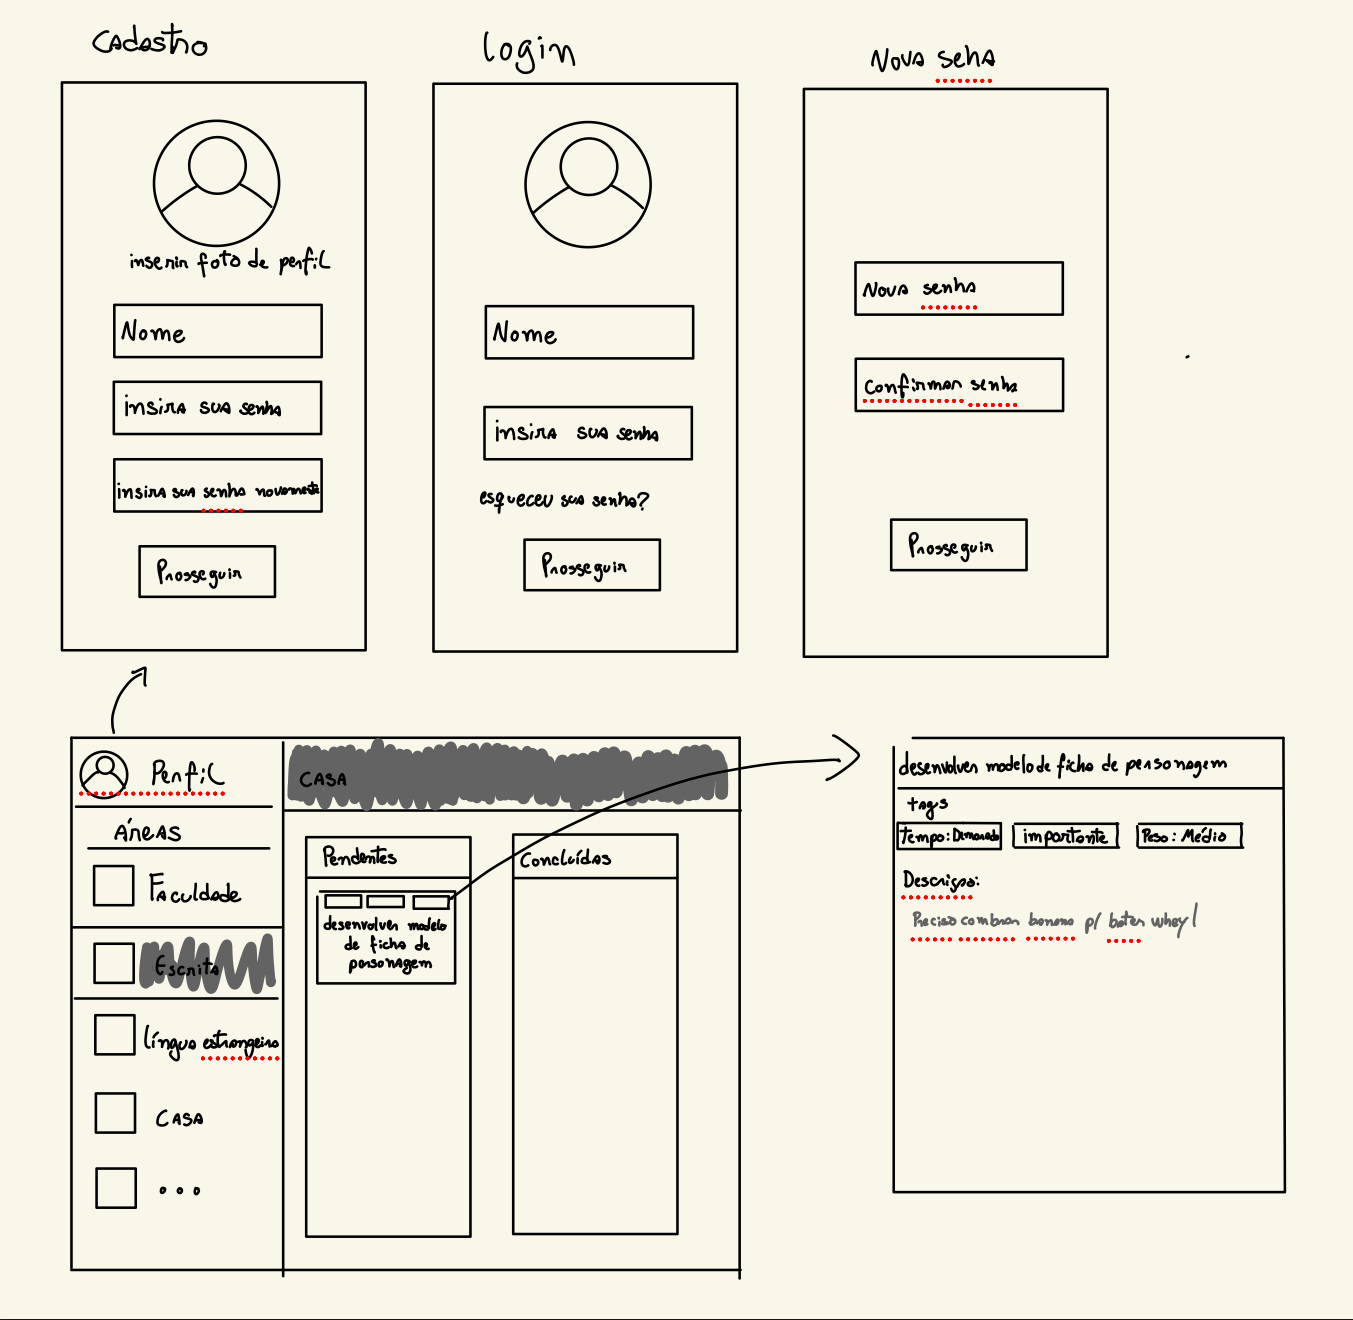 Cadastro
login
Nova seha
inserir foto de perfil
Nome
insira sua senha
insira sua senha novamente
Prosseguir
Nome
insira sua senha
esqueceu sua senha?
Prosseguir
Nova senha
Confirmar senha
Prosseguir
Perfil
Áreas
Faculdade
Escrita
língua estrangeira
Casa
...
Casa
Pendentes
desenvolver modelo
de ficha de
personagem
Concluídas
desenvolver modelo de ficha de personagem
tags
tempo: Demorado
importante
Peso: Médio
Preciso comprar banana p/ bater whey